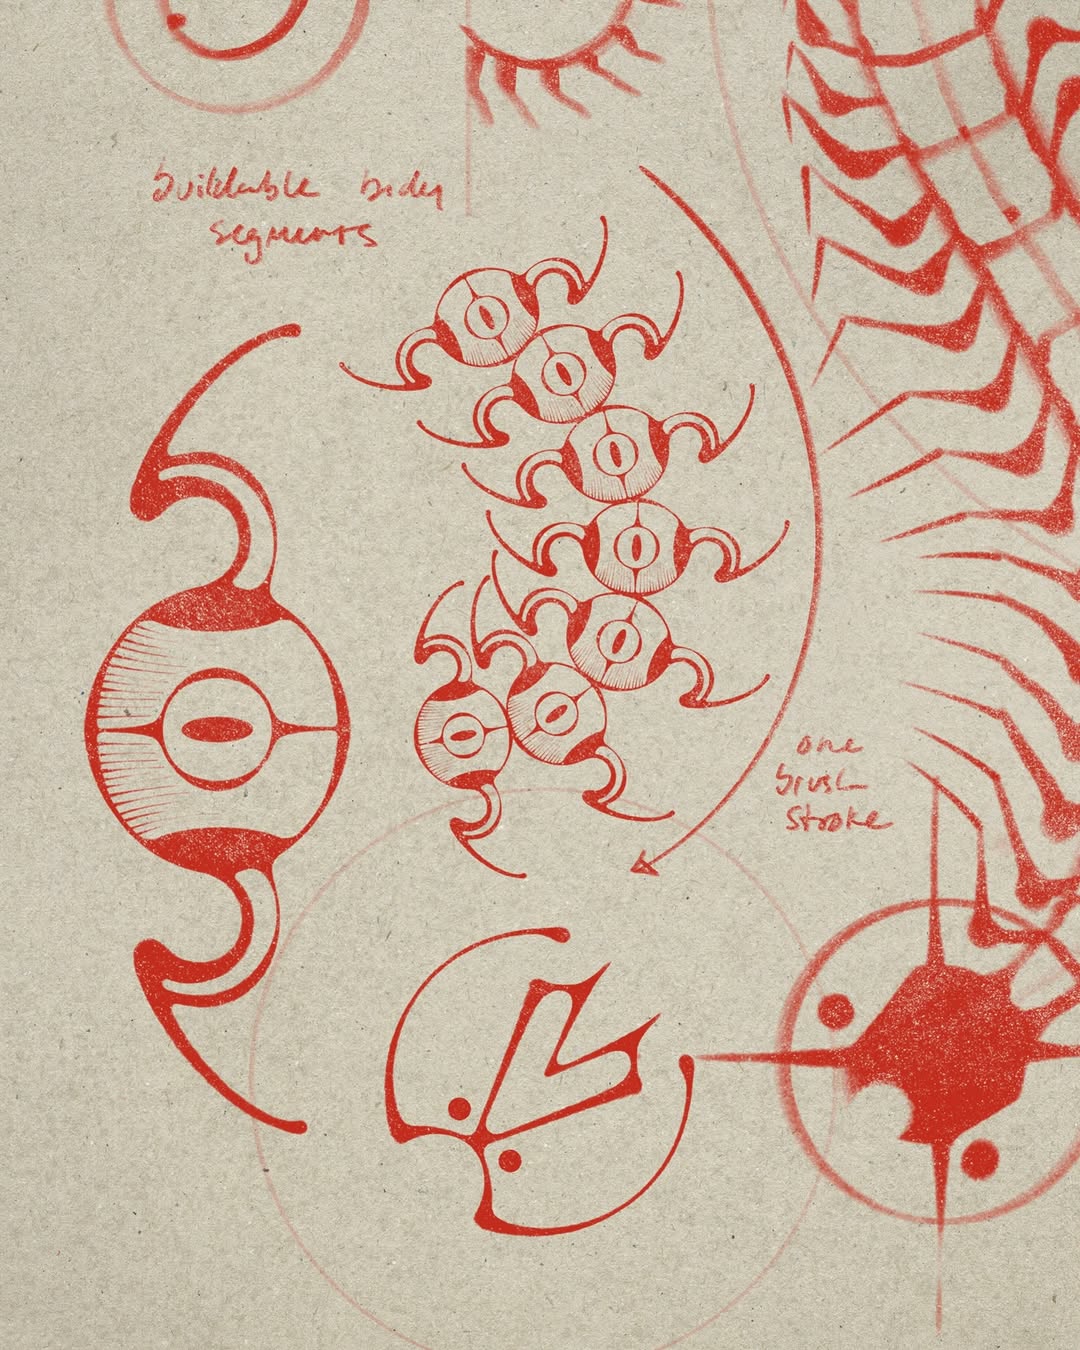 buildable body
segments
one
brush
stroke